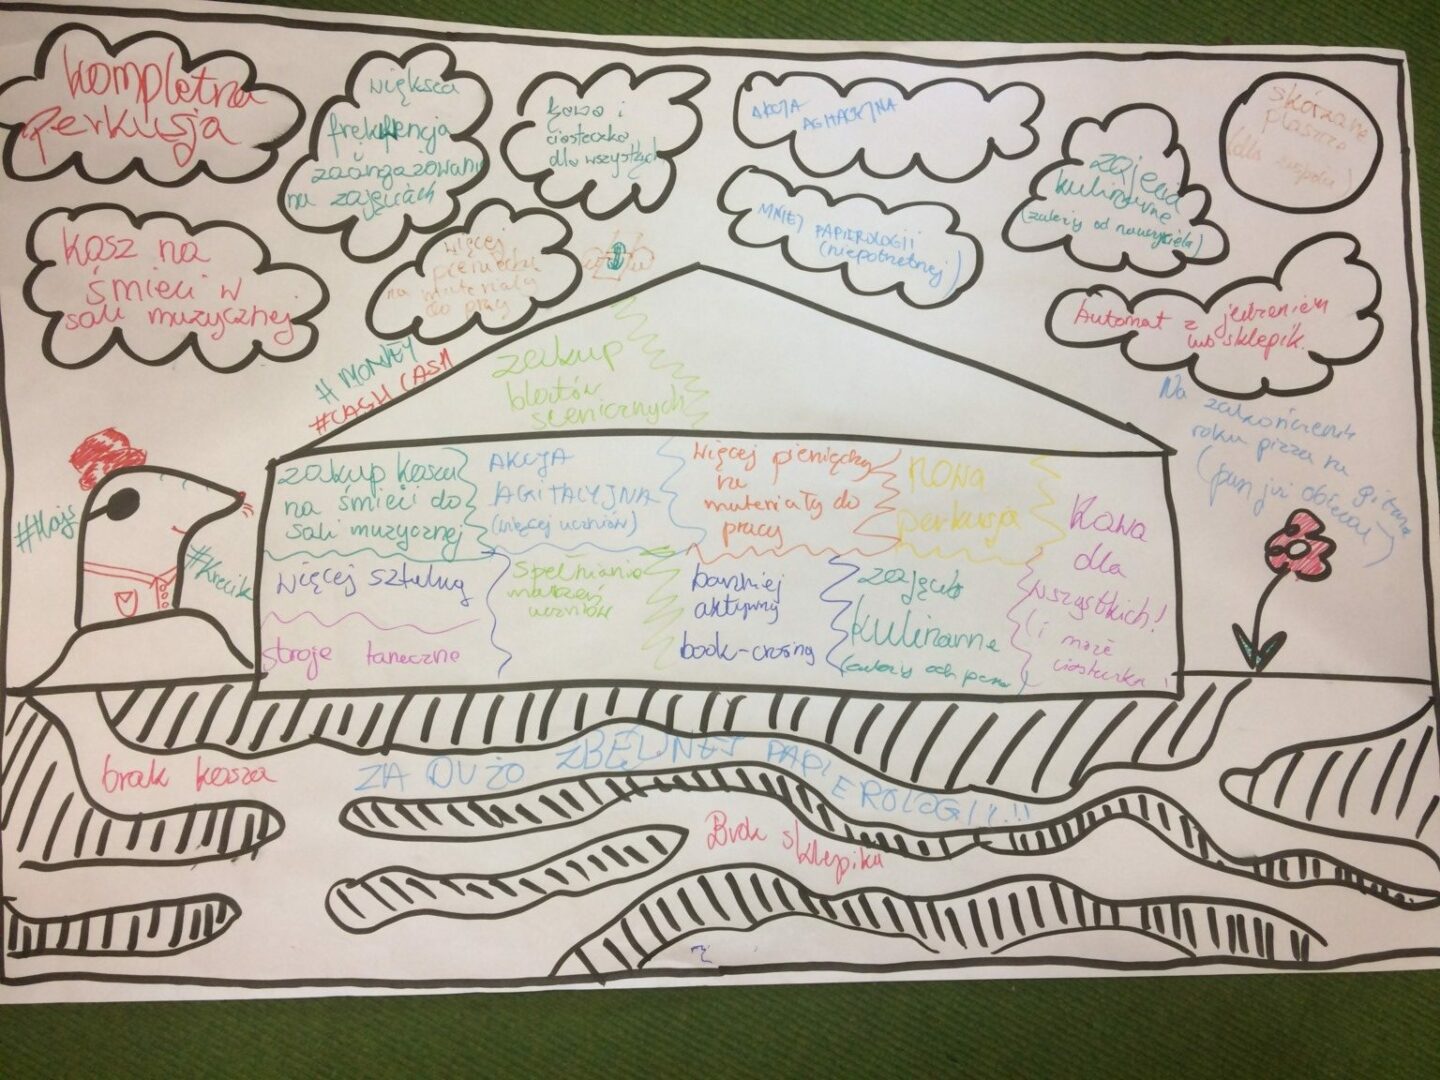 Kompletna
perkusja
większa
frekwencja
zaangażowanie
na zajęciach
Kawa i
ciasteczka
dla wszystkich
AKCJA
AGITACYJNA
zajęcia
kulinarne
(zależy od nauczyciela)
skórzane
płaszcze
(dla zespołu)
Kosz na
śmieci w
sali muzycznej
więcej
pieniędzy
na materiały
do pracy
MNIEJ PAPIEROLOGII
(niepotrzebnej)
Automat z jedzeniem
lub sklepik.
# MONEY
#CASH CASH
zakup
blatów
scenicznych
Na zakończenie
roku pizza na
(pan już obiecał)
zakup kosza
na śmieci do
sali muzycznej
AKCJA
AGITACYJNA
(więcej uczniów)
więcej pieniędzy
na
materiały do
pracy
nowa
perkusja
Kawa
dla
wszystkich!
(i może
ciasteczka!
#Hajs
#Krecik
więcej sztalug
spełniania
marzeń
uczniów
bardziej
aktywny
book-crosing
zajęcia
kulinarne
stroje taneczne
brak kosza
ZA DUŻO ZBĘDNEJ PAPIEROLOGII!!!
Brak sklepiku